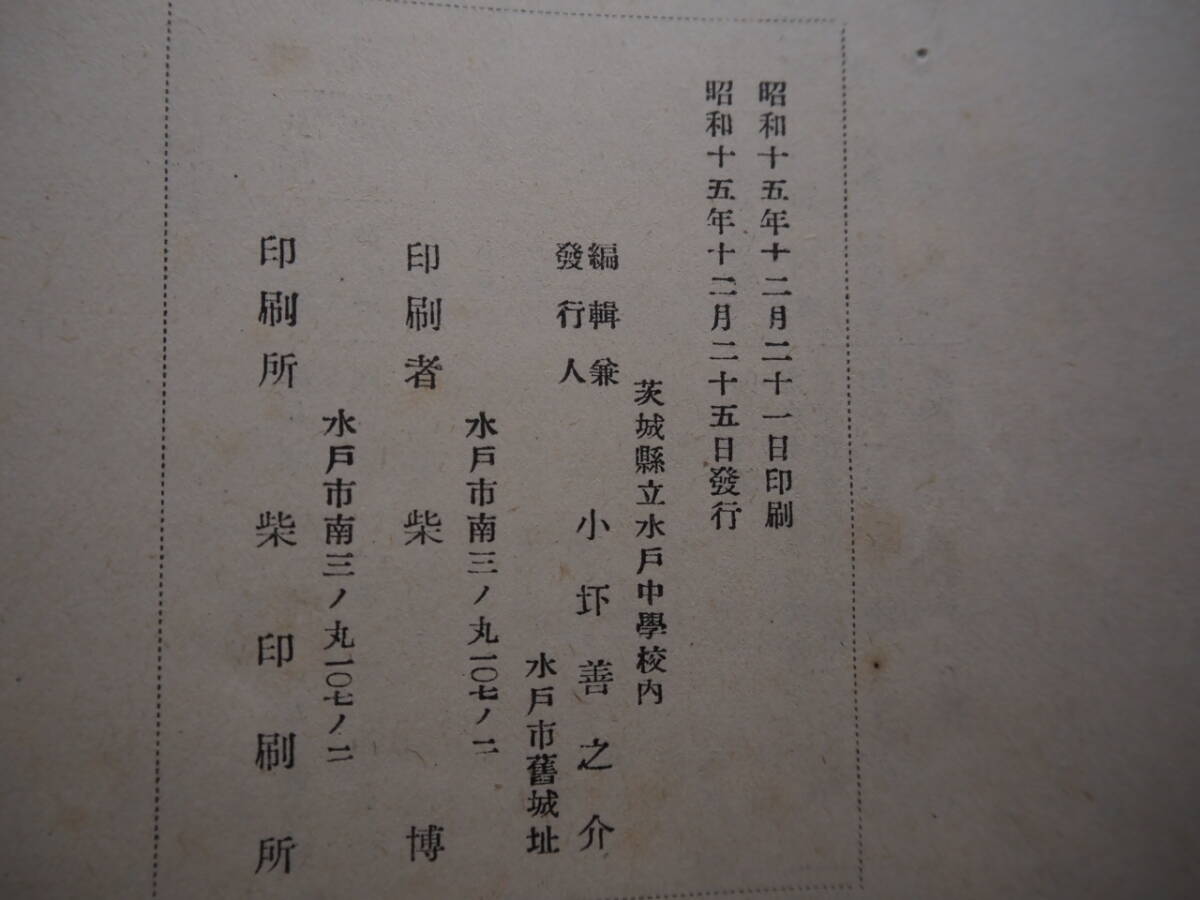 昭和十五年十二月二十一日印刷
昭和十五年十二月二十五日發行
茨城縣立水戸中學校内
編輯兼
發行人
小圷善之介
水戸市舊城址
水戸市南三ノ丸一〇七ノ二
印刷者 柴博
水戸市南三ノ丸一〇七ノ二
印刷所 柴印刷所